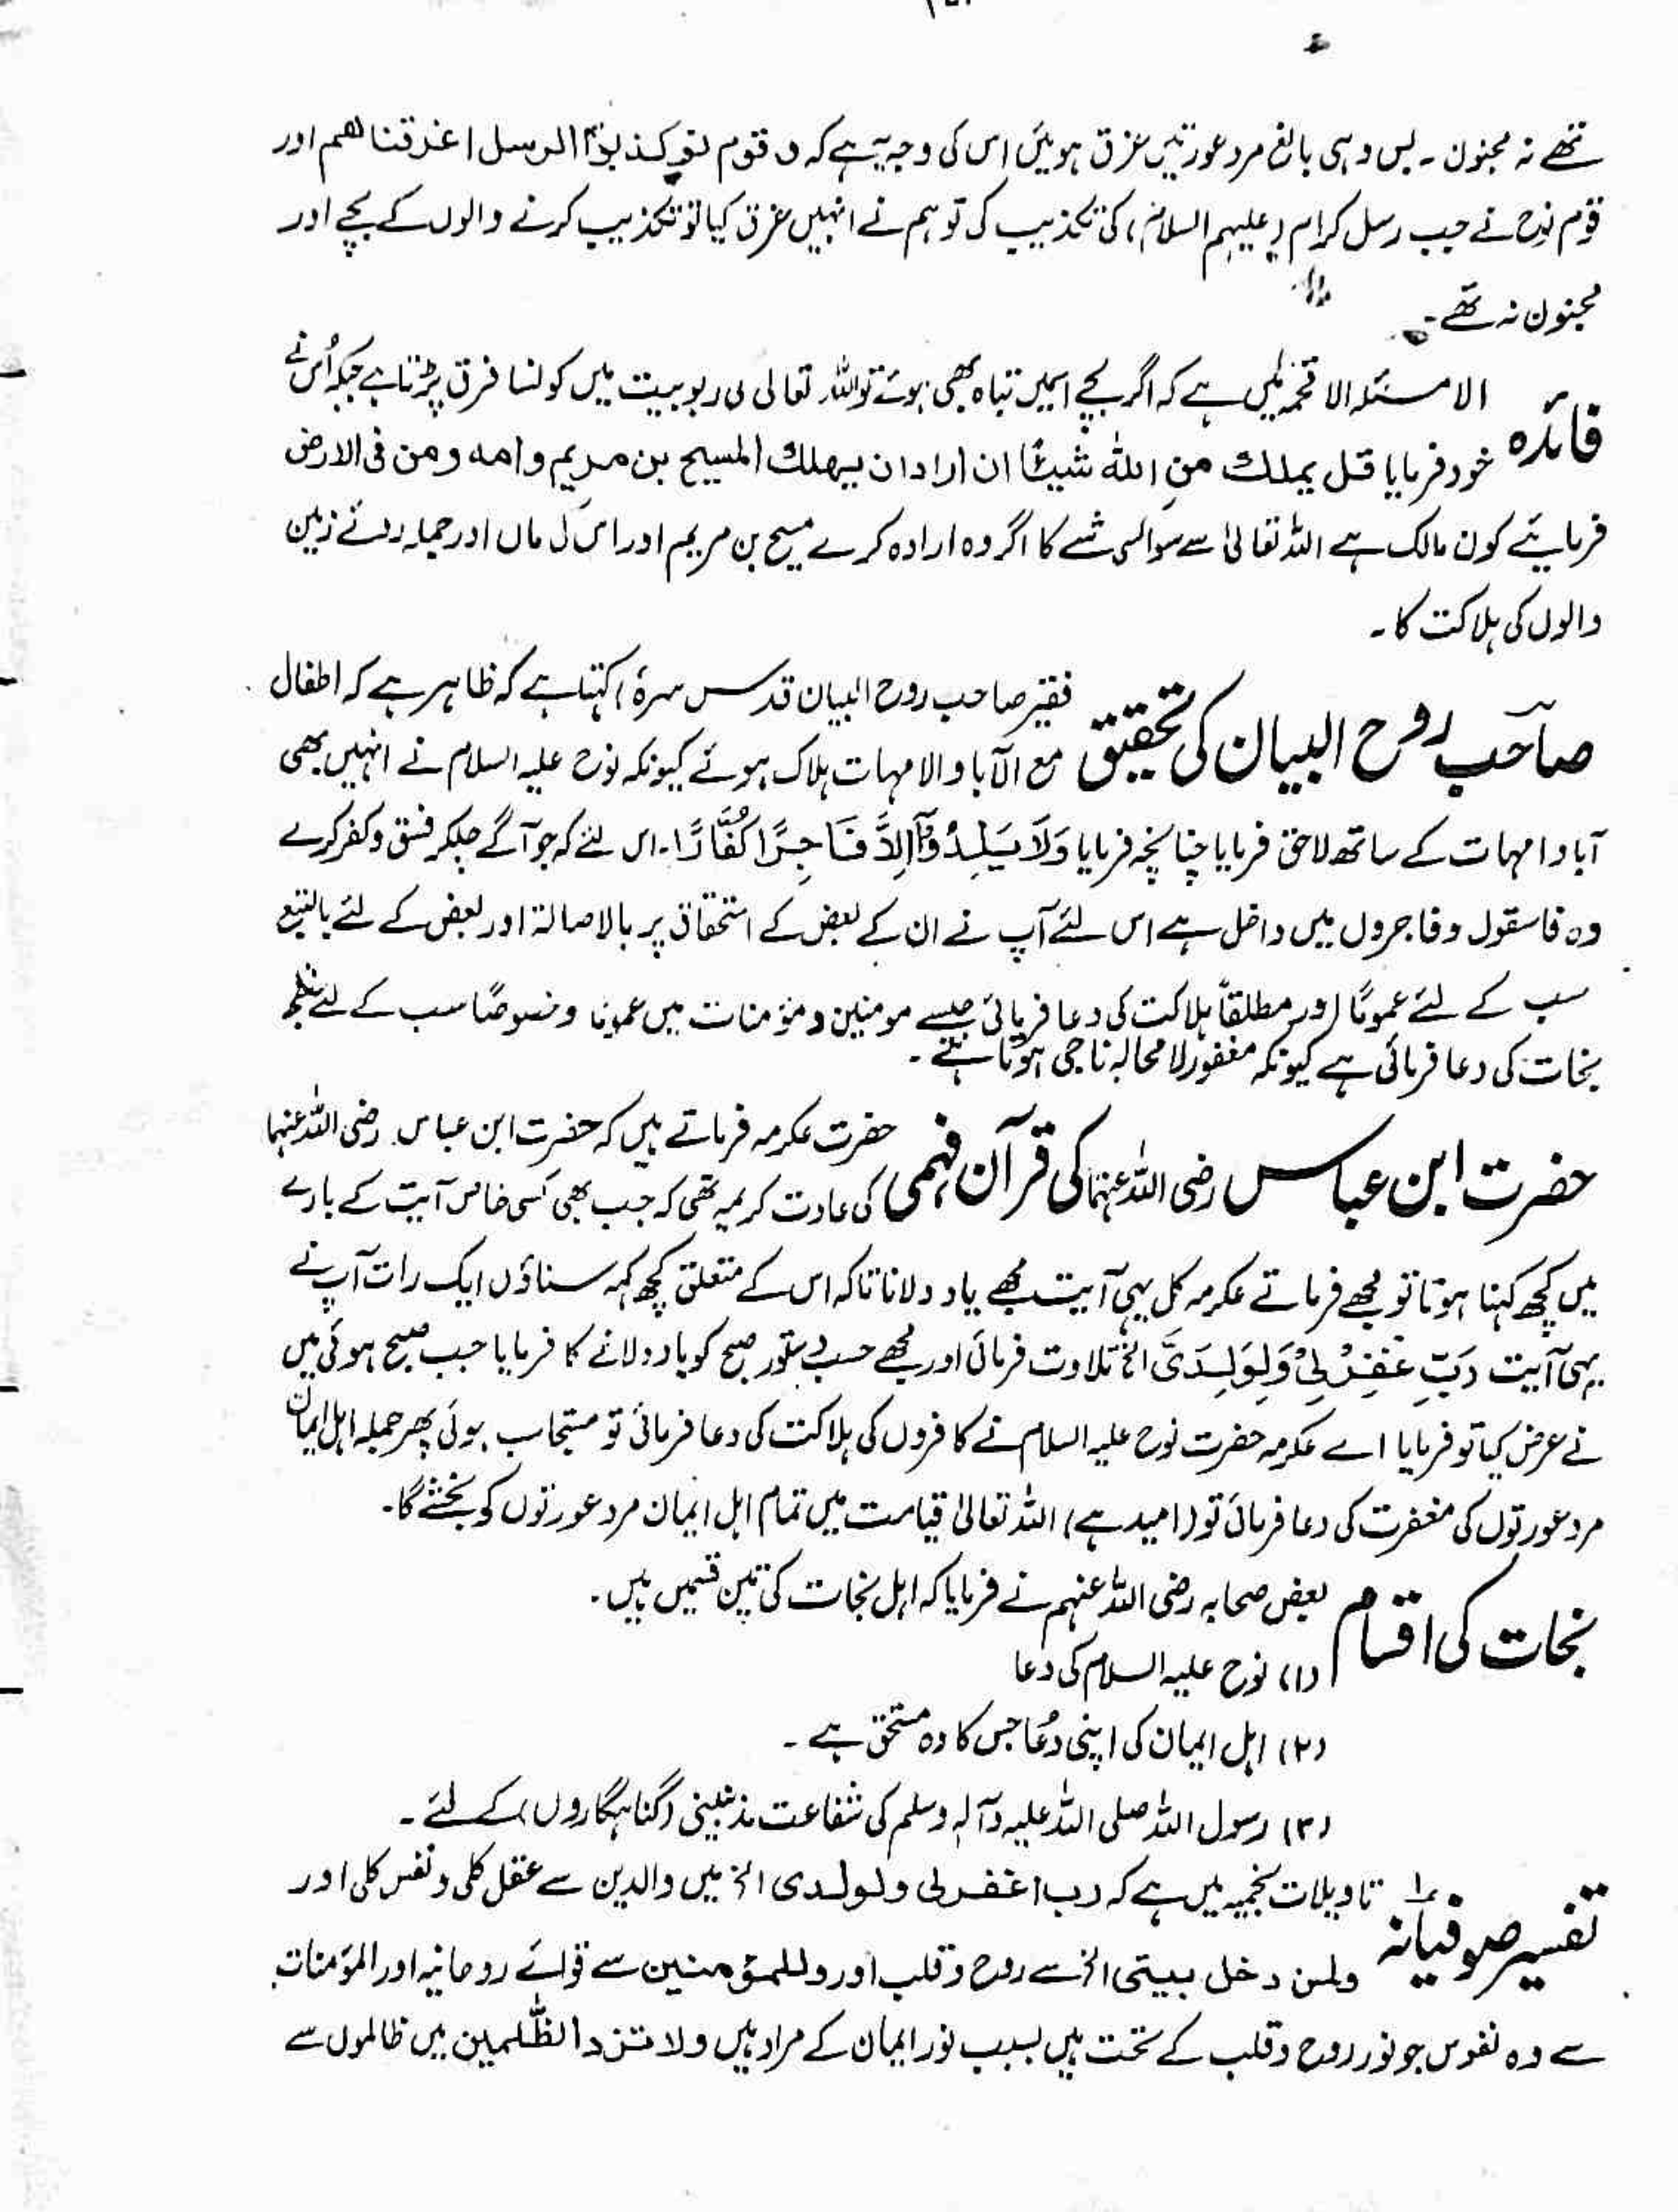 تھے نہ مجنون ۔ بس وہی بالغ مرد عورتیں غرق ہوئیں اس کی وجہ یہ ہے کہ و قوم نوح کذبوا الرسل اغرقناهم اور
قوم نوح نے جب رسل کرام (علیہم السلام) کی تکذیب کی تو ہم نے انہیں غرق کیا تو تکذیب کرنے والوں کے بچے اور
مجنون نہ تھے ۔
فائدہ الاسئلہ الاقحمہ میں ہے کہ اگر بچے اسمیں تباہ بھی ہوئے تو اللہ تعالی کی ربوبیت میں کونسا فرق پڑتا ہے جبکہ اُس نے
خود فرمایا قل یملك من اللہ شیئًا ان اراد ان یهلك المسیح بن مریم وامه ومن فی الارض
فرمایئے کون مالک ہے اللہ تعالیٰ سے سوا کسی شے کا اگر وہ ارادہ کرے مسیح بن مریم اور اس کی ماں اور جملہ روئے زمین
والوں کی ہلاکت کا ۔
صاحب روح البیان کی تحقیق فقیر صاحب روح البیان قدس سرہٗ) کہتا ہے کہ ظاہر ہے کہ اطفال
مع الآبا والامہات ہلاک ہوئے کیونکہ نوح علیہ السلام نے انہیں بھی
آبا و امہات کے ساتھ لاحق فرمایا چنانچہ فرمایا وَلَا یَلِدُوۡآ اِلَّا فَاجِرًا کَفَّارًا ۔ اس لئے کہ جو آگے چلکر فسق و کفر کرے
وہ فاسقوں و فاجروں میں داخل ہے اس لئے آپ نے ان کے بعض کے استحقاق پر بالاصالۃ اور بعض کے لئے بالتبع
سب کے لئے عمومًا اور مطلقاً ہلاکت کی دعا فرمائی جیسے مومنین و مؤمنات میں عمومًا و خصوصًا سب کے لئے
نجات کی دعا فرمائی ہے کیونکہ مغفور لامحالہ ناجی ہوتا ہے ۔
حضرت ابن عباس رضی اللہ عنہما کی قرآن فہمی حضرت عکرمہ فرماتے ہیں کہ حضرت ابن عباس رضی اللہ عنہما
کی عادت کریمہ تھی کہ جب بھی کسی خاص آیت کے بارے
میں کچھ کہنا ہوتا تو مجھے فرماتے عکرمہ کل یہی آیت مجھے یاد دلانا تاکہ اس کے متعلق کچھ کہہ سناؤں ایک رات آپ نے
یہی آیت رَبِّ غْفِرْ لِیْ وَلِوَلِدَیَّ الخ تلاوت فرمائی اور مجھے حسب دستور صبح کو یاد دلانے کا فرمایا جب صبح ہوئی میں
نے عرض کیا تو فرمایا اے عکرمہ حضرت نوح علیہ السلام نے کافروں کی ہلاکت کی دعا فرمائی تو مستجاب ہوئی پھر جملہ اہل ایمان
مرد عورتوں کی مغفرت کی دعا فرمائی تو (امید ہے) اللہ تعالیٰ قیامت میں تمام اہل ایمان مرد عورتوں کو بخشے گا ۔
نجات کی اقسام بعض صحابہ رضی اللہ عنہم نے فرمایا کہ اہل نجات کی تین قسمیں ہیں ۔
(۱) نوح علیہ السلام کی دعا
(۲) اہل ایمان کی اپنی دُعا جس کا وہ مستحق ہے ۔
(۳) رسول اللہ صلی اللہ علیہ وآلہ وسلم کی شفاعت مذنبین (گناہگاروں) کے لئے ۔
تفسیر صوفیانہ تاویلات نجمیہ میں ہے کہ رب اغفرلی ولوالدی الخ میں والدین سے عقل کلی و نفس کلی اور
ولمن دخل بیتی الخ سے روح و قلب اور وللمؤمنین سے قوائے روحانیہ اور المؤمنات
سے وہ نفوس جو نور روح و قلب کے تحت ہیں بسبب نور ایمان کے مراد ہیں ولا تزد الظّٰلمین میں ظالموں سے